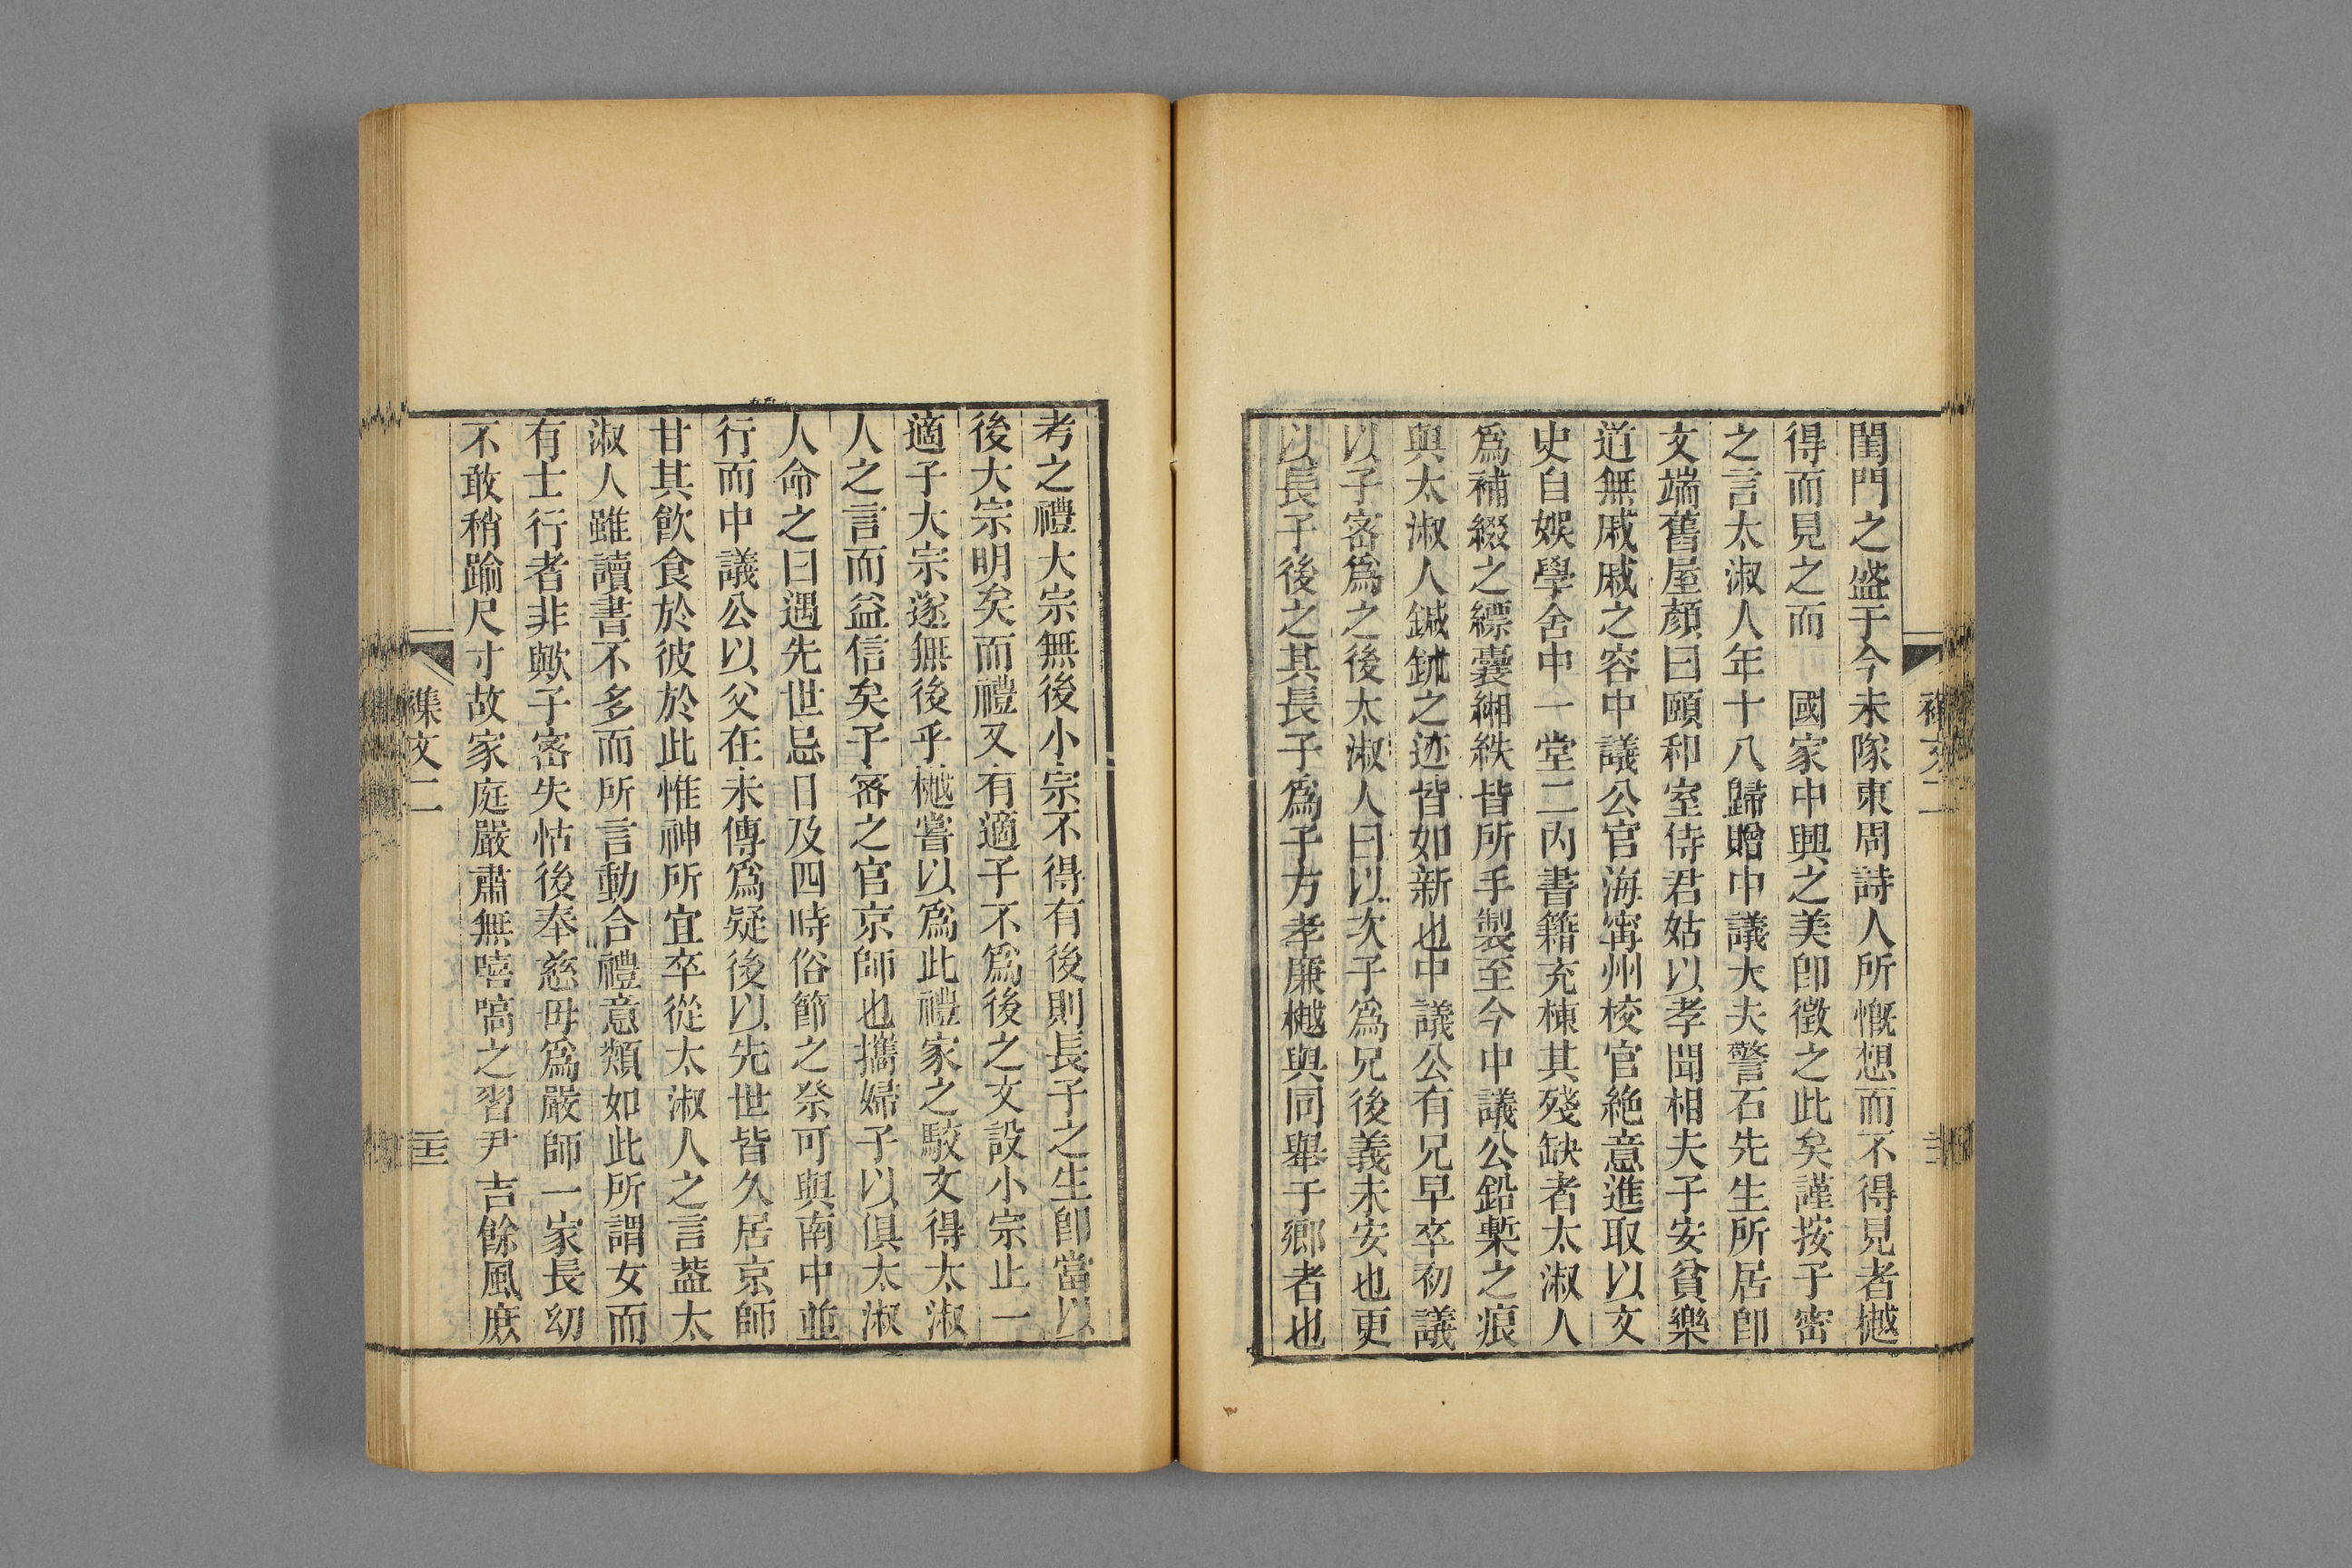 閨門之盛于今未隊東周詩人所慨想而不得見者樾
得而見之而　國家中興之美卽徵之此矣謹按子密
之言太淑人年十八歸贈中議大夫警石先生所居卽
文端舊屋顏曰頤和室侍君姑以孝聞相夫子安貧樂
道無戚戚之容中議公官海甯州校官絶意進取以文
史自娛學舍中一堂二內書籍充棟其殘缺者太淑人
爲補綴之縹囊緗紩皆所手製至今中議公鉛槧之痕
與太淑人鍼鉥之迹皆如新也中議公有兄早卒初議
以子密爲之後太淑人曰以次子爲兄後義未安也更
以長子後之其長子爲子方孝廉樾與同舉于鄉者也
考之禮大宗無後小宗不得有後則長子之生卽當以
後大宗明矣而禮又有適子不爲後之文設小宗止一
適子大宗遂無後乎樾嘗以爲此禮家之駁文得太淑
人之言而益信矣子密之官京師也攜婦子以俱太淑
人命之曰遇先世忌日及四時俗節之祭可與南中並
行而中議公以父在未傳爲疑後以先世皆久居京師
甘其飮食於彼於此惟神所宜卒從太淑人之言葢太
淑人雖讀書不多而所言動合禮意類如此所謂女而
有士行者非歟子密失怙後奉慈母爲嚴師一家長幼
不敢稍踰尺寸故家庭嚴肅無嘻嗃之習尹吉餘風庶
襍文二